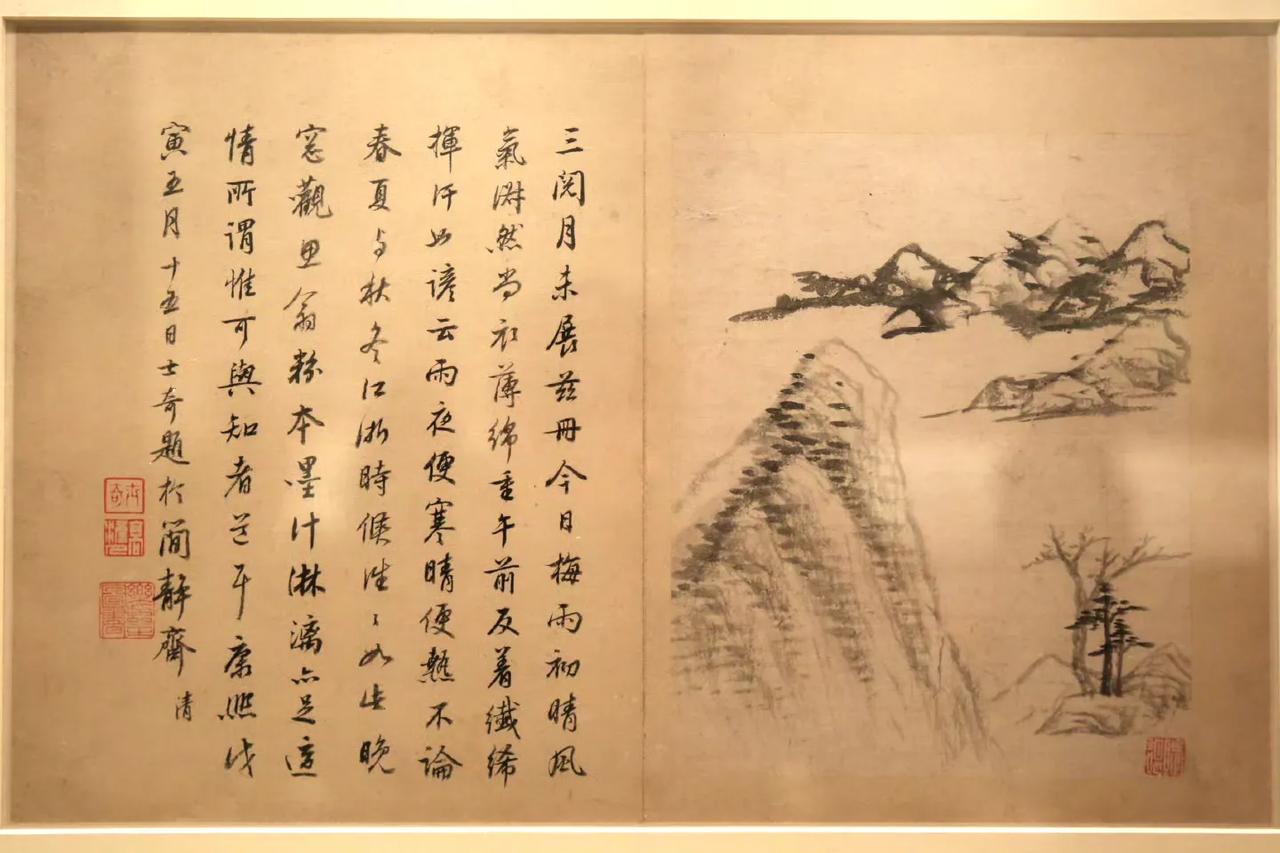 三閱月未展茲冊今日梅雨初晴風
氣然尚衣薄綿重午前反着纖絺
揮汗如諺云雨夜便寒晴便熱不論
春夏与秋冬江浙時候往〻如此晚
窓觀思翁粉本墨汁淋漓亦足適
情所謂惟可與知者道耳康熙戊
寅五月十五日士奇題於簡靜齋 清
士奇